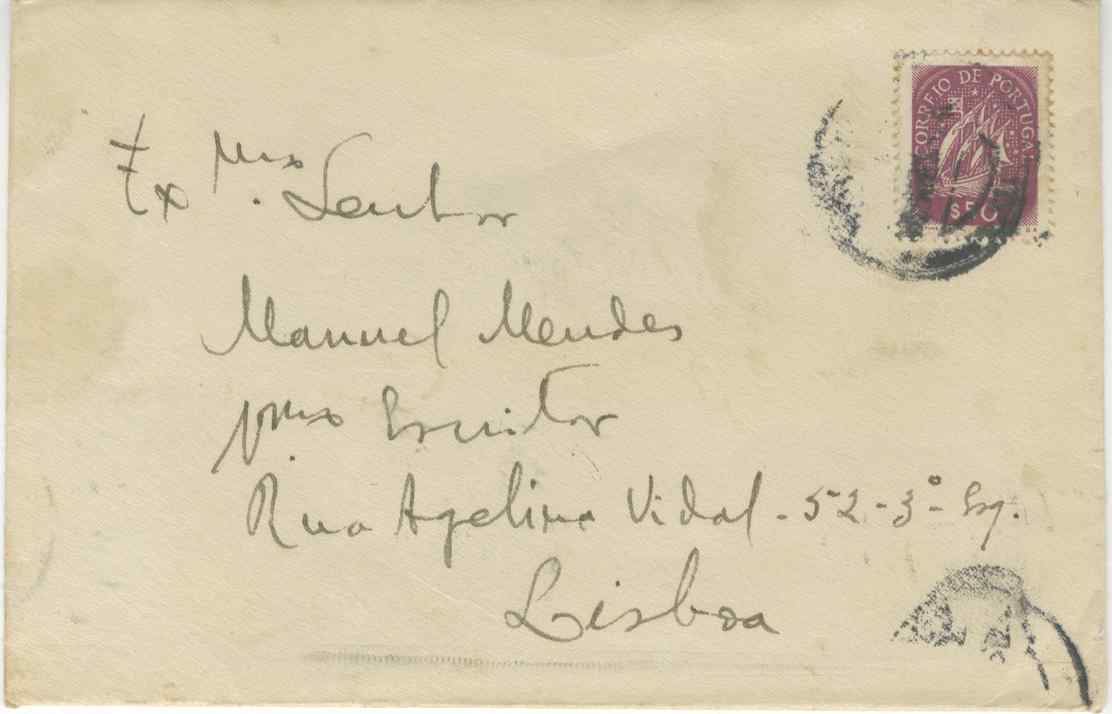 CORREIO DE PORTUGAL
$50
Exmo. Senhor
Manuel Mendes
Escritor
Rua Agelina Vidal - 52 - 3º Esq.
Lisboa